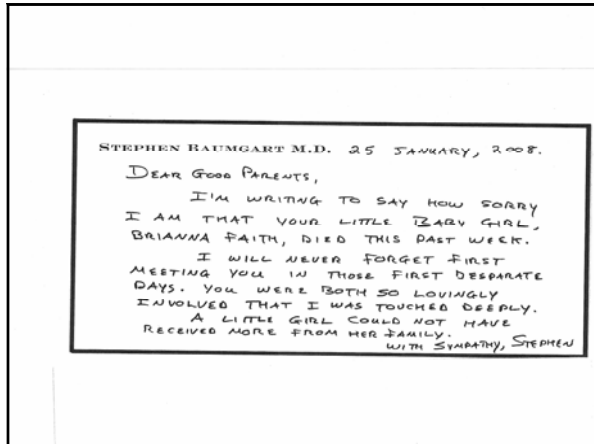 STEPHEN BAUMGART M.D. 25 JANUARY, 2008.
DEAR GOOD PARENTS,
I'M WRITING TO SAY HOW SORRY
I AM THAT YOUR LITTLE BABY GIRL,
BRIANNA FAITH, DIED THIS PAST WEEK.
I WILL NEVER FORGET FIRST
MEETING YOU IN THOSE FIRST DESPARATE
DAYS. YOU WERE BOTH SO LOVINGLY
INVOLVED THAT I WAS TOUCHED DEEPLY.
A LITTLE GIRL COULD NOT HAVE
RECEIVED MORE FROM HER FAMILY.
WITH SYMPATHY, STEPHEN